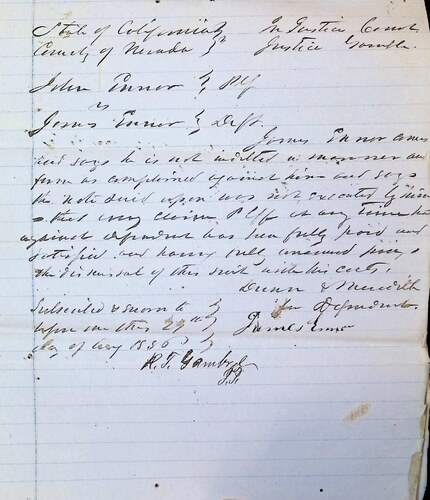 State of California } In Justice Court
County of Nevada } Justice Gamble
John Ennor } Plff
vs
James Ennor } Deft
James Ennor comes
and says he is not indebted in manner and
form as complained against him and says
the note sued upon was not executed by him
& that any claim Plff at any time had
against defendant has been fully paid and
satisfied and having fully answered prays
the dismissal of this suit with his costs.
Dunn & Meredith
for Defendant
Subscribed & sworn to }
before me this 29th } James Ennor
day of Aug 1856 }
R. T. Gamble
J.P.